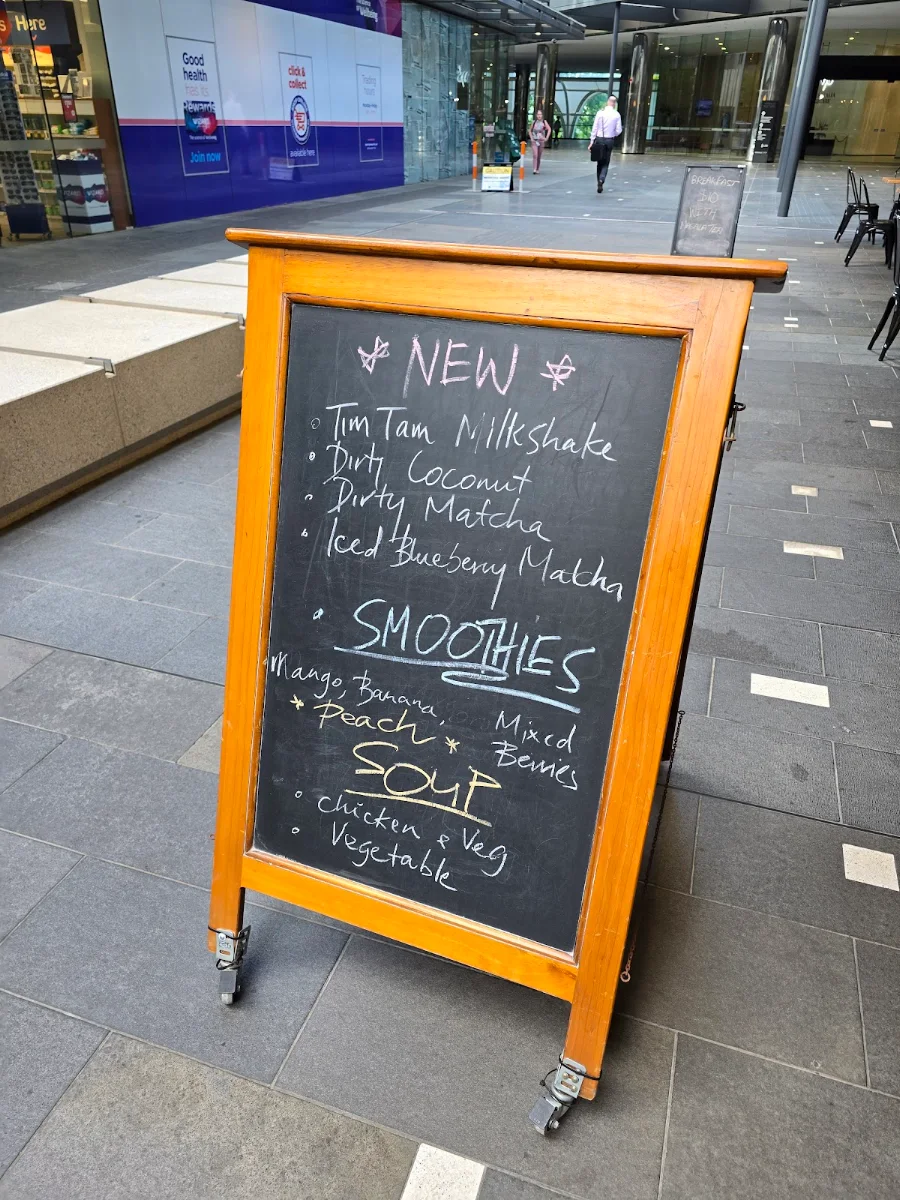 s Here
Good
health
has its
Rewards
Join now
click &
collect
available here
* NEW *
Tim Tam Milkshake
Dirty Coconut
Dirty Matcha
Iced Blueberry Matcha
SMOOTHIES
Mango, Banana, Mixed
Berries
* Peach *
SOUP
chicken & Veg
Vegetable
BREAKFAST